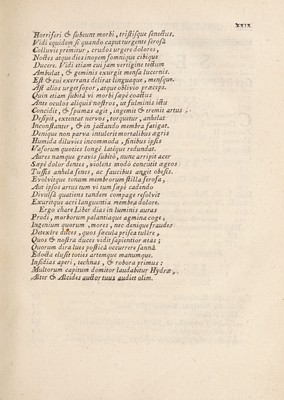 XXIX
Horriferi & subeunt morbi, tristisque senectus.
Vidi equidem si quando caput urgente serosâ
Colluvie premitur, crudos urgere dolores,
Noctes atque dies inopem somnique cibique
Ducere. Vidi etiam cui jam vertigine tectum
Ambulat, & geminis exurgit mensa lucernis.
Est & cui exerrans delirat linguaque, mensque.
Ast alios urget sopor, atque oblivio præceps.
Quin etiam subitâ vi morbi sæpè coactus
Ante oculos aliquis nostros, ut fulminis ictu
Concidit, & spumas agit, ingemit & tremit artus;
Desipit, extentat nervos, torquetur, anhelat
Inconstanter, & in jactando membra fatigat.
Denique non parva intulerit mortalibus ægris
Humida diluvies incommoda, finibus ipsis
Vasorum quoties longè latéque redundat.
Aures namque gravis subitò, nunc arripit acer
Sæpè dolor dentes, violens modò concipit agros:
Tussis anhela senes, ac faucibus angit obesis.
Evolvitque tonam membrorum stilla serosa,
Aut ipsos artus tum vi tum sæpè cadendo
Divulsâ quatiens tandem compage resolvit
Exuritque acri languentia membra dolore.
Ergo chare Liber dias in luminis auras
Prodi, morborum palantiaque agmina coge;
Ingenium quorum, mores, nec denique fraudes
Detexêre duces, quos sæcula prisca tulêre,
Quos & nostra duces vidit sapientior ætas;
Quorum dira lues posticâ occurrere sannâ
Edocta elusit toties artemque manumque.
Insidias aperi, technas, & robora primus:
Multorum capitum domitor laudabitur Hydræ,
Alter & Alcides auctor tuus audiet olim.